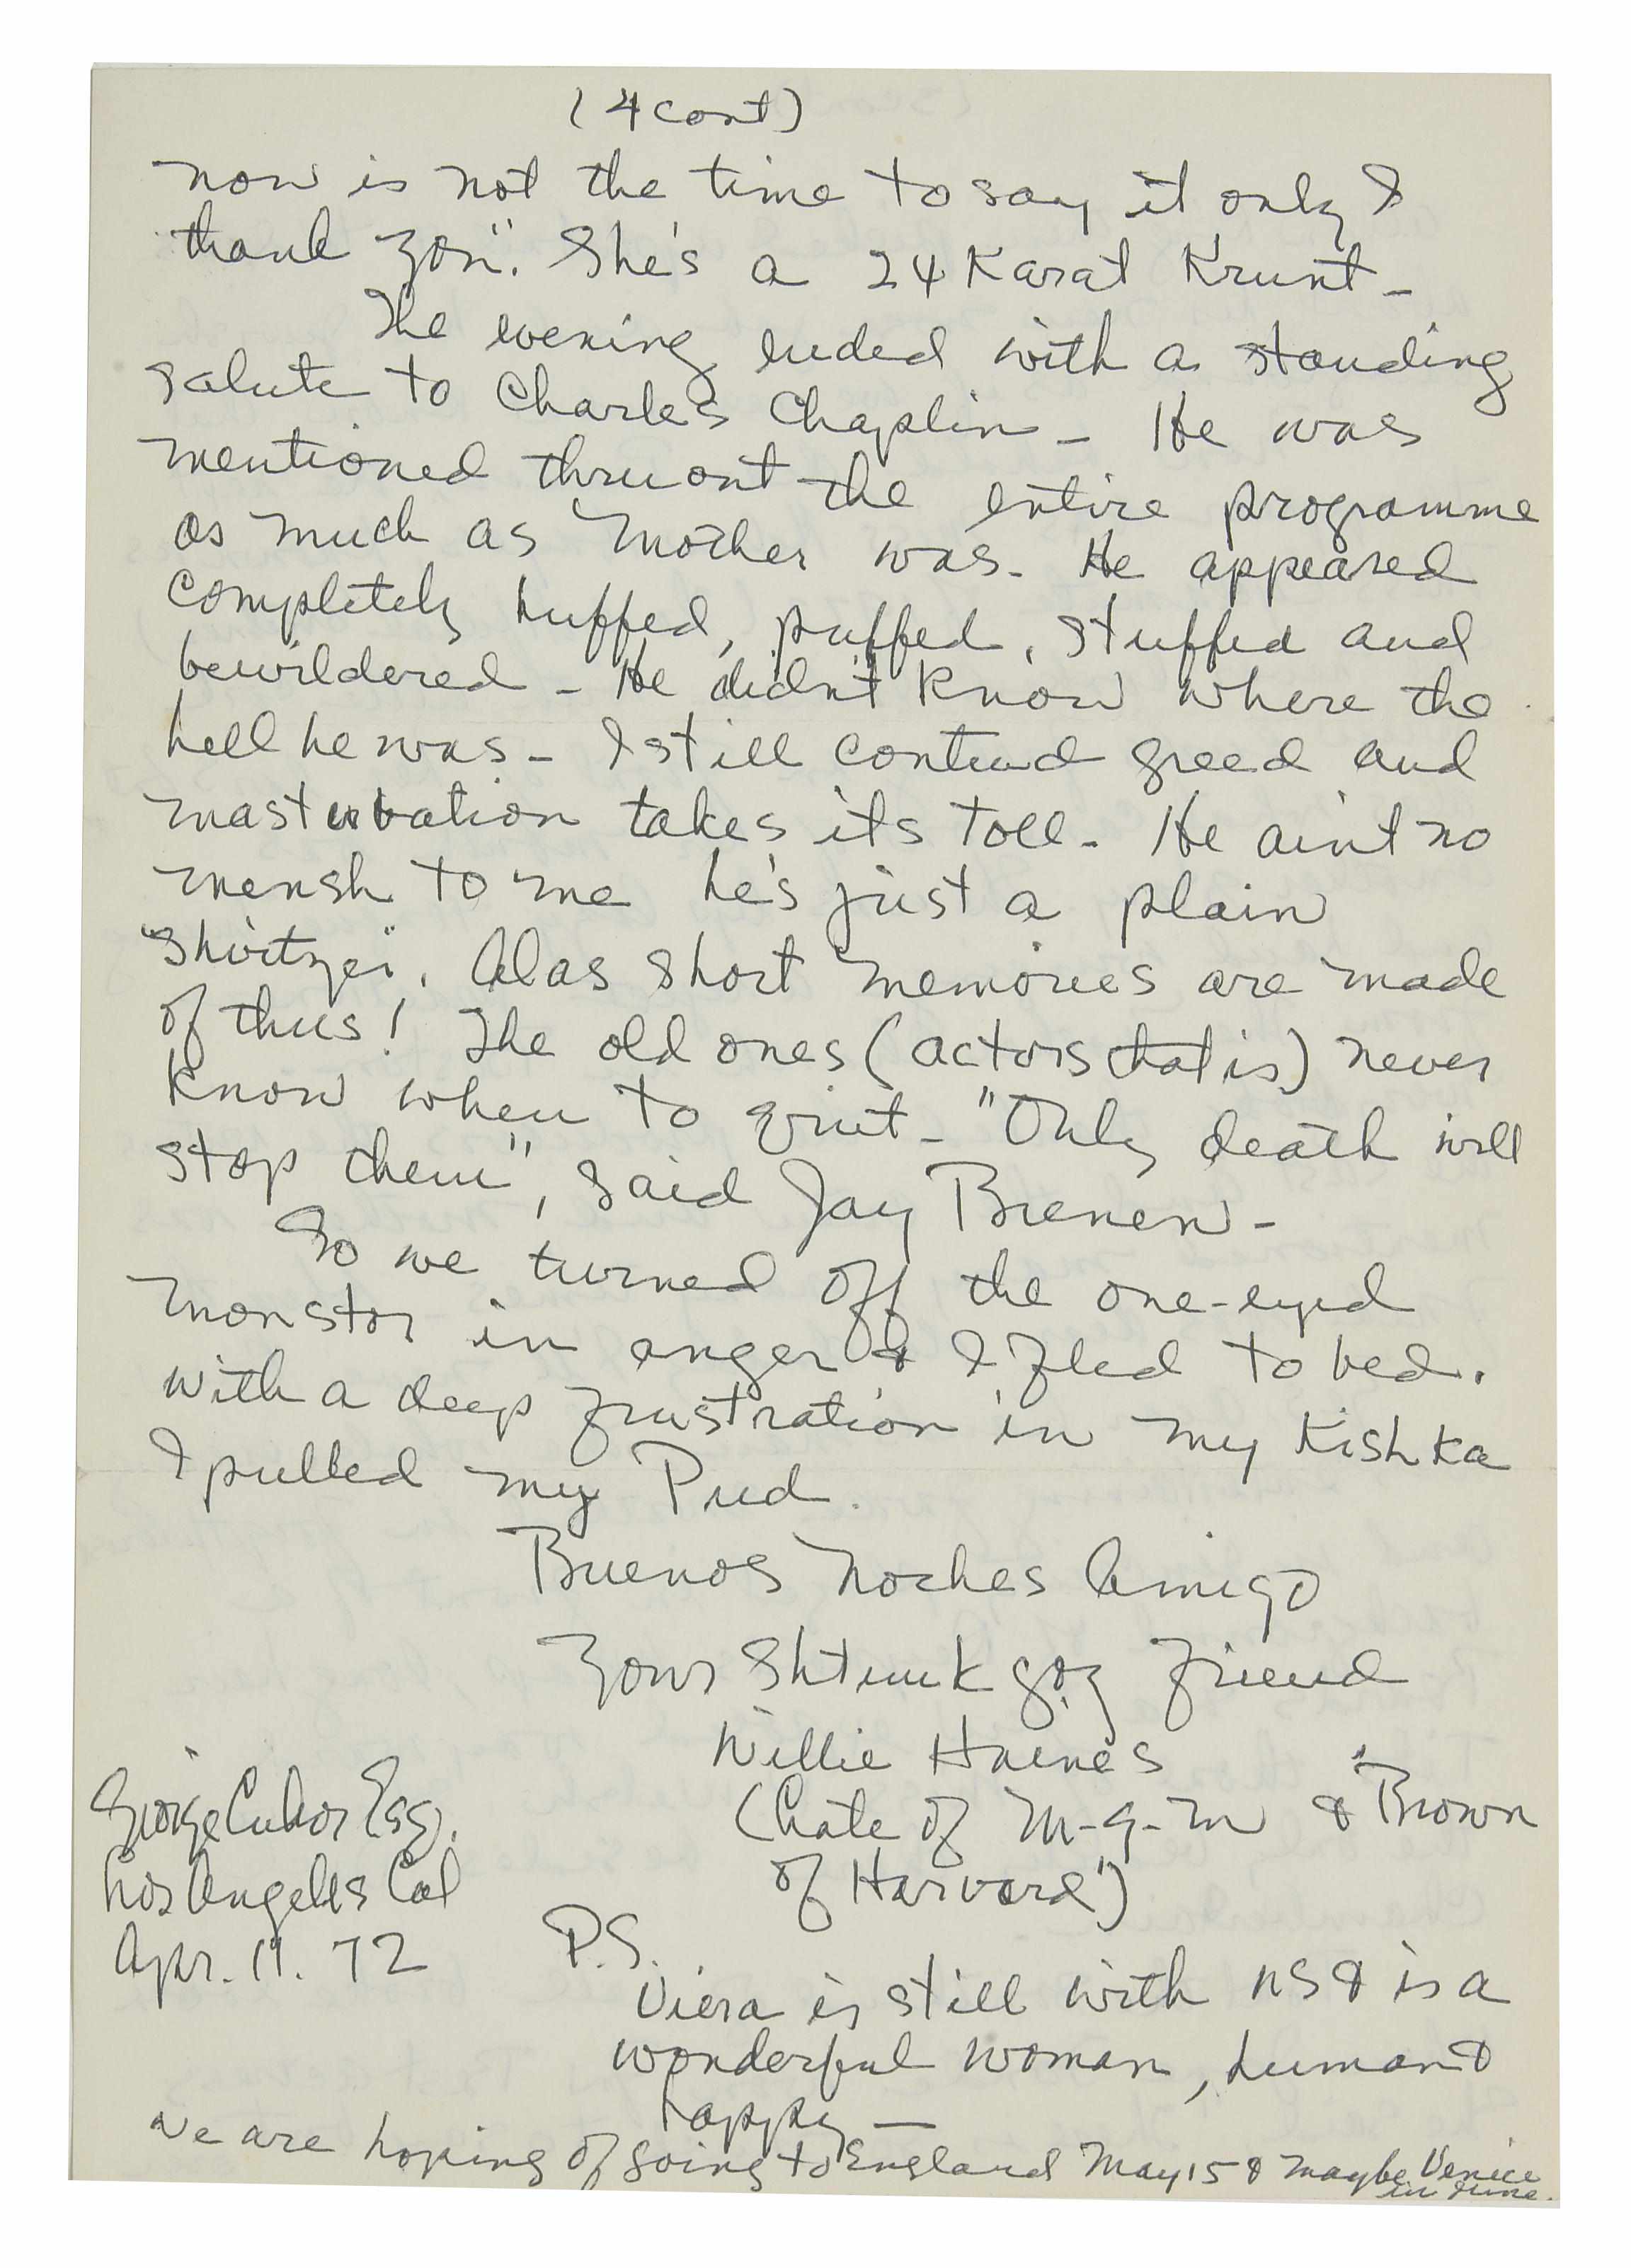 (4 cont)
now is not the time to say it only I
thank you". She's a 24 Karat Krunt -
The evening ended with a standing
salute to Charles Chaplin - He was
mentioned thruout the entire programme
as much as Mother was. He appeared
completely huffed, puffed, stuffed and
bewildered - He didn't know where the
hell he was - I still contend greed and
masturbation takes its toll. He aint no
mensh to me he's just a plain
"shvitzer". Alas short memories are made
of thus! The old ones (actors that is) never
know when to quit - "Only death will
stop them", said Jay Brenen -
So we turned off the one-eyed
monstor in anger & I fled to bed.
with a deep frustration in my Kishka
I pulled my Pud.
Buenos Noches Amigo
Your Shtunk goy friend
Willie Haines
(Late of M-G-M & "Brown
of Harvard")
George Cukor Esq.
Los Angeles Cal
Apr. 11. 72
P.S.
Viera is still with us & is a
wonderful woman, human &
happy —
We are hoping of going to England May 15 & maybe Venice
in June.